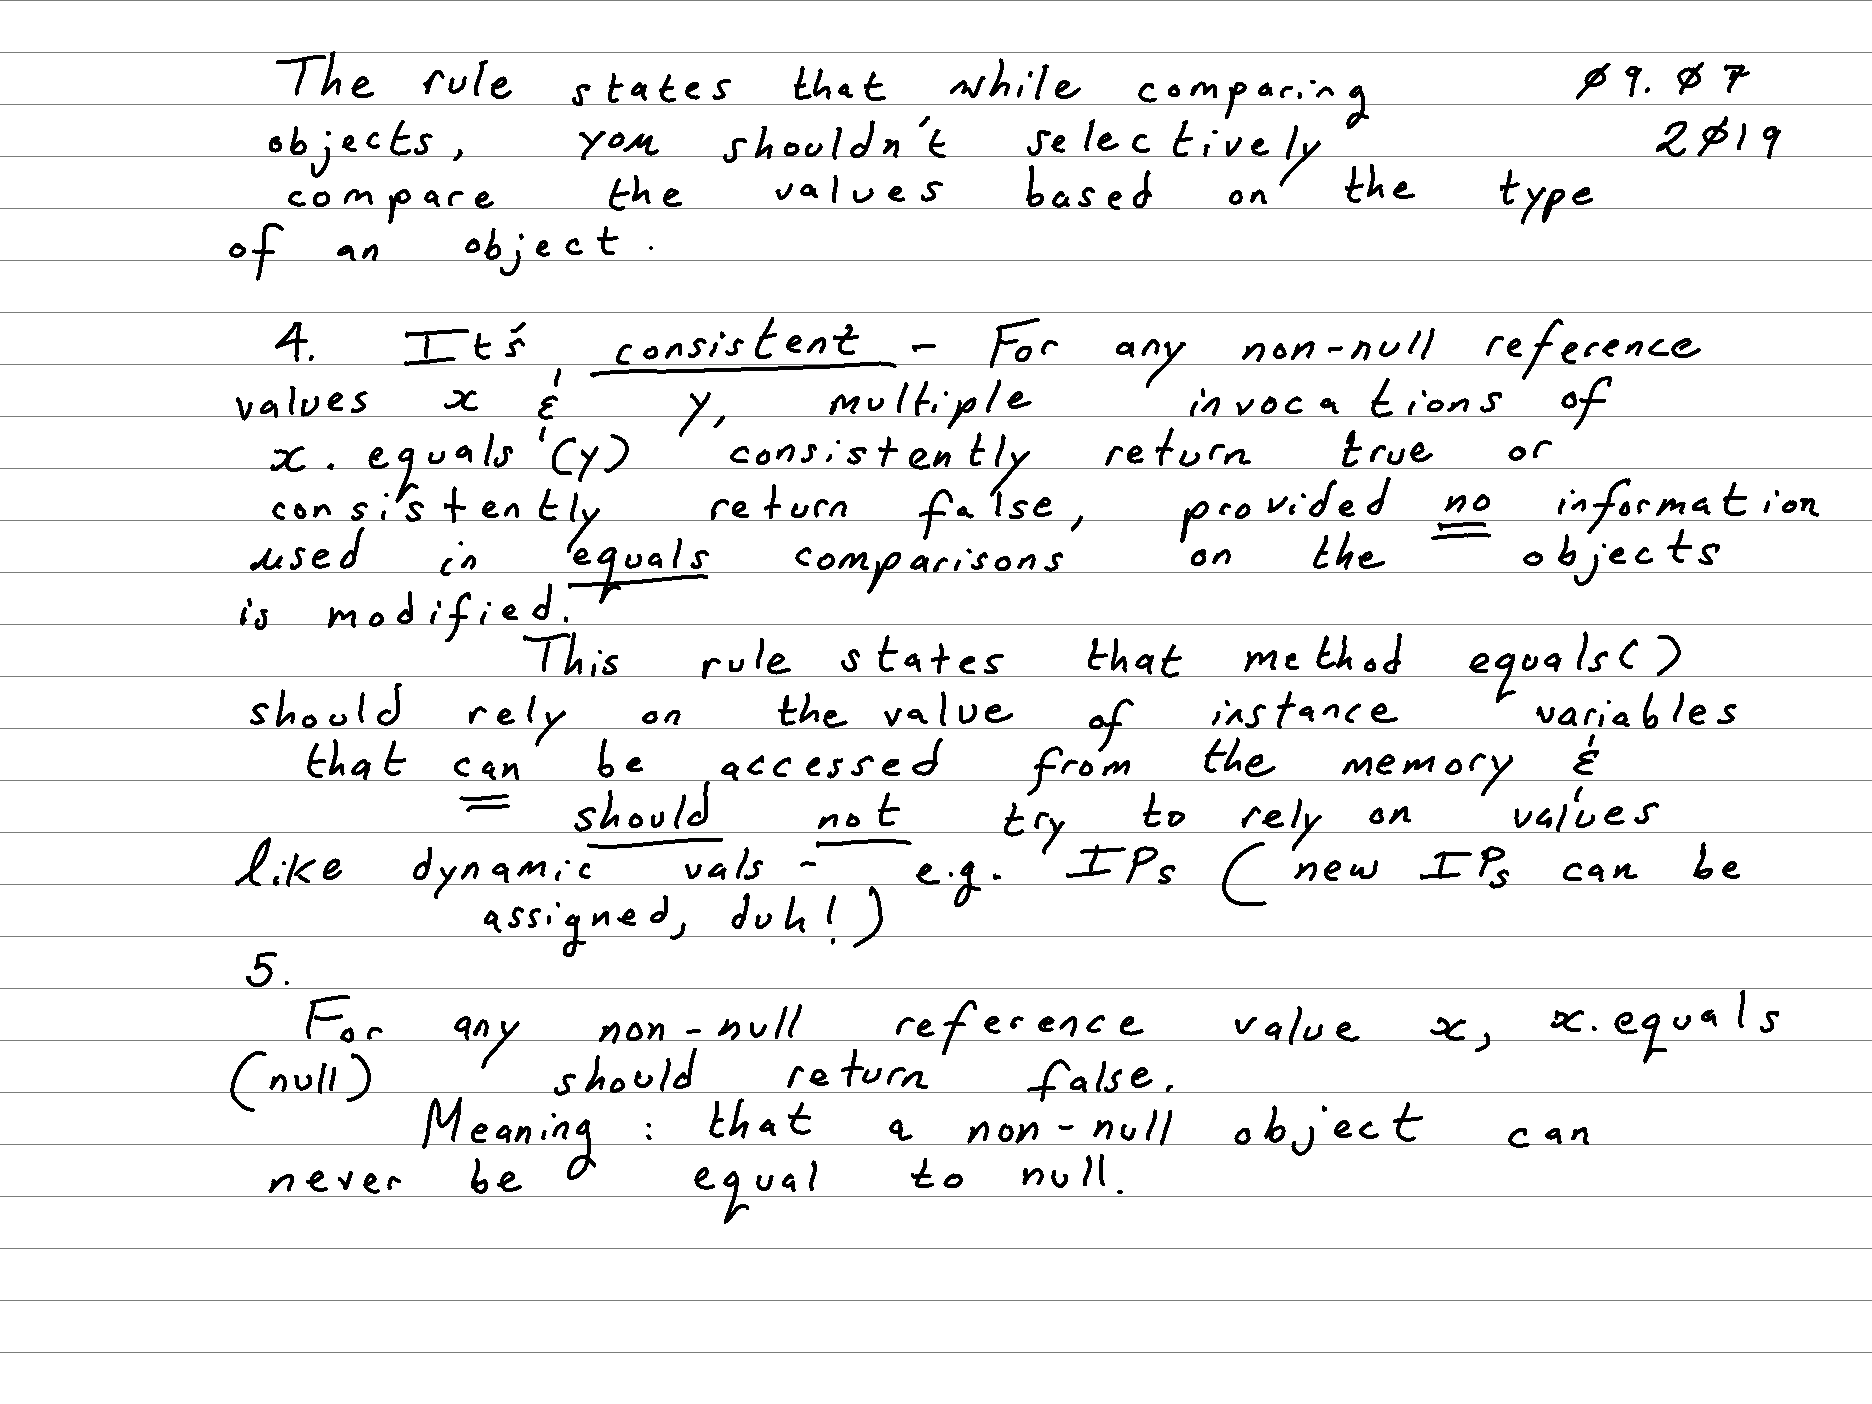 The rule states that while comparing 09.07
objects, you shouldn't selectively 2019
compare the values based on the type
of an object.
4. It's consistent - For any non-null reference
values x & y, multiple invocations of
x.equals(y) consistently return true or
consistently return false, provided no information
used in equals comparisons on the objects
is modified.
This rule states that method equals()
should rely on the value of instance variables
that can be accessed from the memory &
should not try to rely on values
like dynamic vals - e.g. IPs (new IPs can be
assigned, duh!)
5.
For any non-null reference value x, x.equals
(null) should return false.
Meaning: that a non-null object can
never be equal to null.